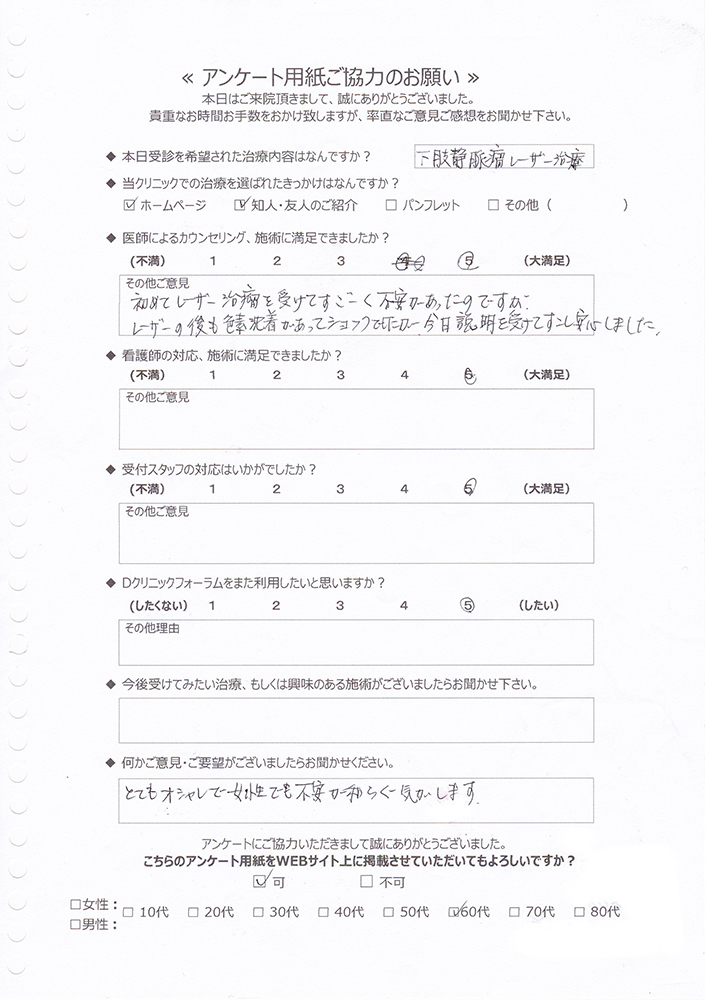 ≪ アンケート用紙ご協力のお願い ≫
本日はご来院頂きまして、誠にありがとうございました。
貴重なお時間お手数をおかけ致しますが、率直なご意見ご感想をお聞かせ下さい。
◆ 本日受診を希望された治療内容はなんですか？ 下肢静脈瘤レーザー治療
◆ 当クリニックでの治療を選ばれたきっかけはなんですか？
☑ ホームページ ☑ 知人・友人のご紹介 □ パンフレット □ その他（ ）
◆ 医師によるカウンセリング、施術に満足できましたか？
(不満) 1 2 3 4 ⑤ (大満足)
その他ご意見
初めてレーザー治療を受けてすごーく不安があったのですが、
レーザーの後も色素沈着があってショックでしたが今日説明を受けてすこし安心しました。
◆ 看護師の対応、施術に満足できましたか？
(不満) 1 2 3 4 ⑤ (大満足)
その他ご意見
◆ 受付スタッフの対応はいかがでしたか？
(不満) 1 2 3 4 ⑤ (大満足)
その他ご意見
◆ Dクリニックフォーラムをまた利用したいと思いますか？
(したくない) 1 2 3 4 ⑤ (したい)
その他理由
◆ 今後受けてみたい治療、もしくは興味のある施術がございましたらお聞かせ下さい。
◆ 何かご意見・ご要望がございましたらお聞かせください。
とてもオシャレで女性でも不安が和らぐ気がします。
アンケートにご協力いただきまして誠にありがとうございました。
こちらのアンケート用紙をWEBサイト上に掲載させていただいてもよろしいですか？
☑ 可 □ 不可
□女性：
□ 10代 □ 20代 □ 30代 □ 40代 □ 50代 ☑60代 □ 70代 □ 80代
□男性：